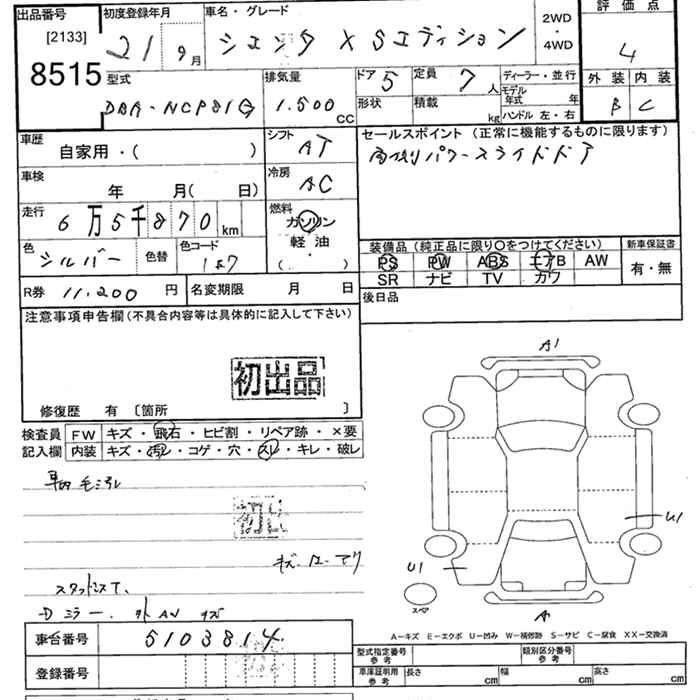 出品番号 [2133] 8515
初度登録年月 21 9月
車名・グレード シエンタ X Sエディション
2WD・4WD
評価点 4
外装 B 内装 C
型式 DBA-NCP81G
排気量 1.500 CC
ドア 5 定員 7人
形状 積載 kg
ディーラー・並行
モデル年式 年
ハンドル 左・右
車歴 自家用・( )
シフト AT
車検 年 月( 日)
冷房 AC
走行 6万5千870km
燃料 ガソリン 軽油 ・ ( )
色 シルバー 色替 色コード 1E7
R券 11,200円 名変期限 月 日
セールスポイント(正常に機能するものに限ります)
両側パワースライドドア
装備品(純正品に限り〇をつけてください) 新車保証書
PS PW ABS エアB AW 有・無
SR ナビ TV カワ
後日品
注意事項申告欄(不具合内容等は具体的に記入して下さい)
初出品
修復歴 有 〔箇所 〕
検査員 FW キズ・飛石・ヒビ割・リペア跡・×要
記入欄 内装 キズ・汚レ・コゲ・穴・スレ・キレ・破レ
スタッドレスT、
Dミラー
A1
U1
U1
スペア
A
A−キズ E−エクボ U−凹み W−補修跡 S−サビ C−腐食 XX−交換済
車台番号 5103814
登録番号
型式指定番号 参考 類別区分番号 参考
車庫証明用 参考 長さ cm 幅 cm 高さ cm